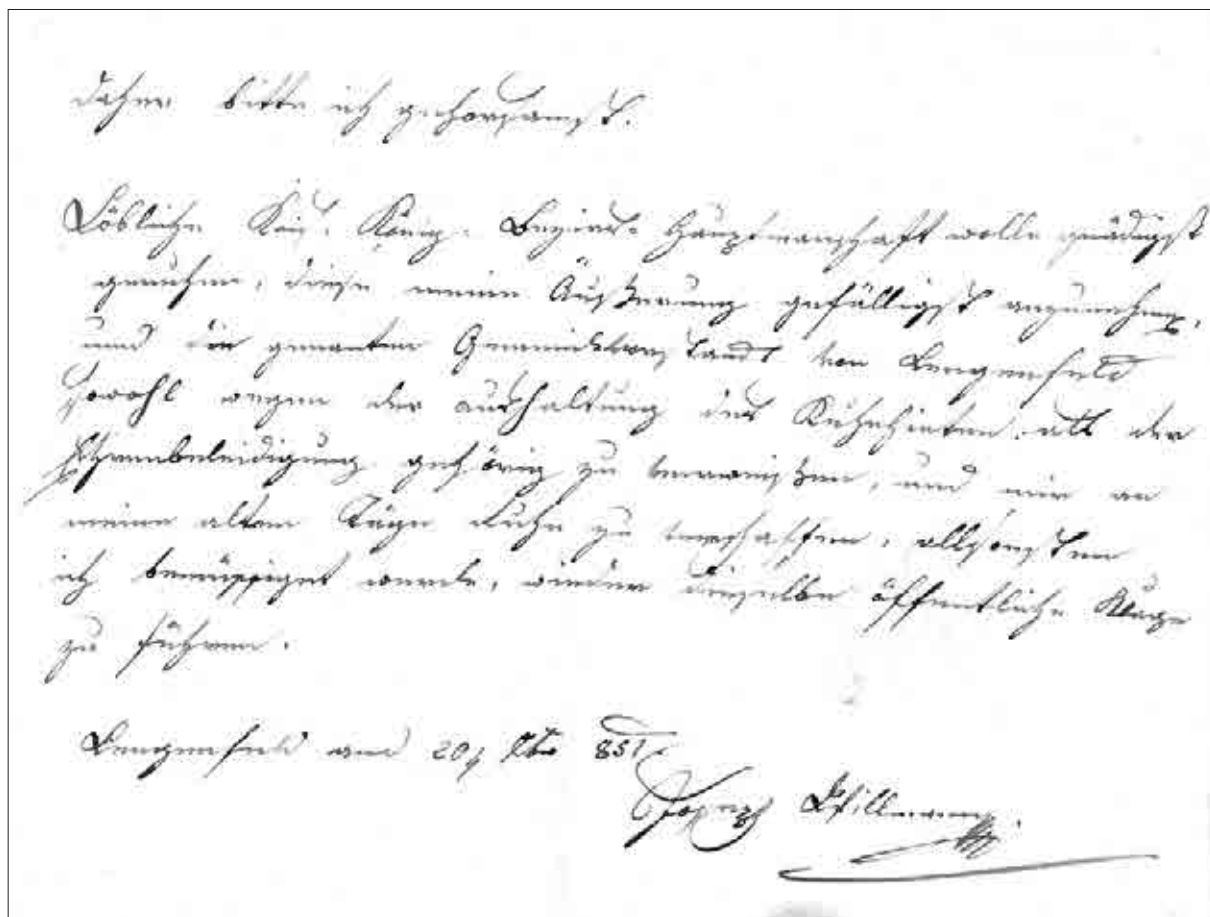 daher bitte ich gehorsamst.
Löbliche Kais. König. Bezirks-Hauptmanschaft wolle gnädigst
geruhen, diese meine Äußerung gefälligst anzunehmen,
und die genanten Gemeindevorstands von Lengenfeld
sowohl wegen der aushaltung des Kuhehirten als der
Ehrenbeleidigung gehörig zu verweißen, und mir an
meine alten Täge Ruhe zu verschaffen, allsonsten
ich bemüssiget werde, wieder dieselbe öffentliche Klage
zu führen.
Lengenfeld am 20 851
Joseph